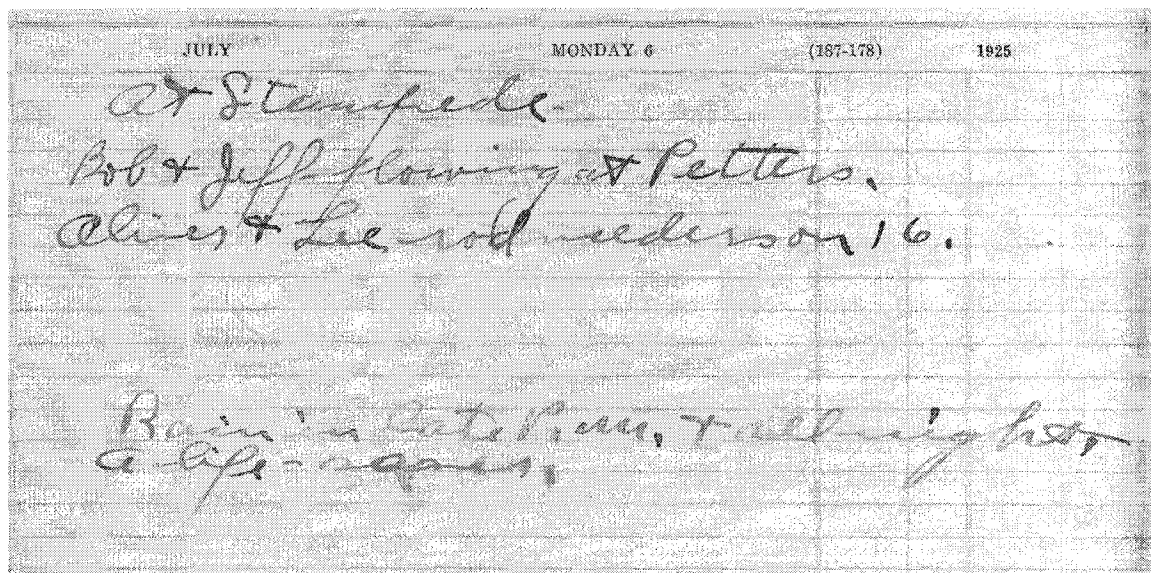 JULY MONDAY 6 (187-178) 1925
At Stampede.
Bob & Jeff plowing at Petters.
Oliver & Lee rod weeders on 16.
Rain in late P.M. & all night,
a life-saver.